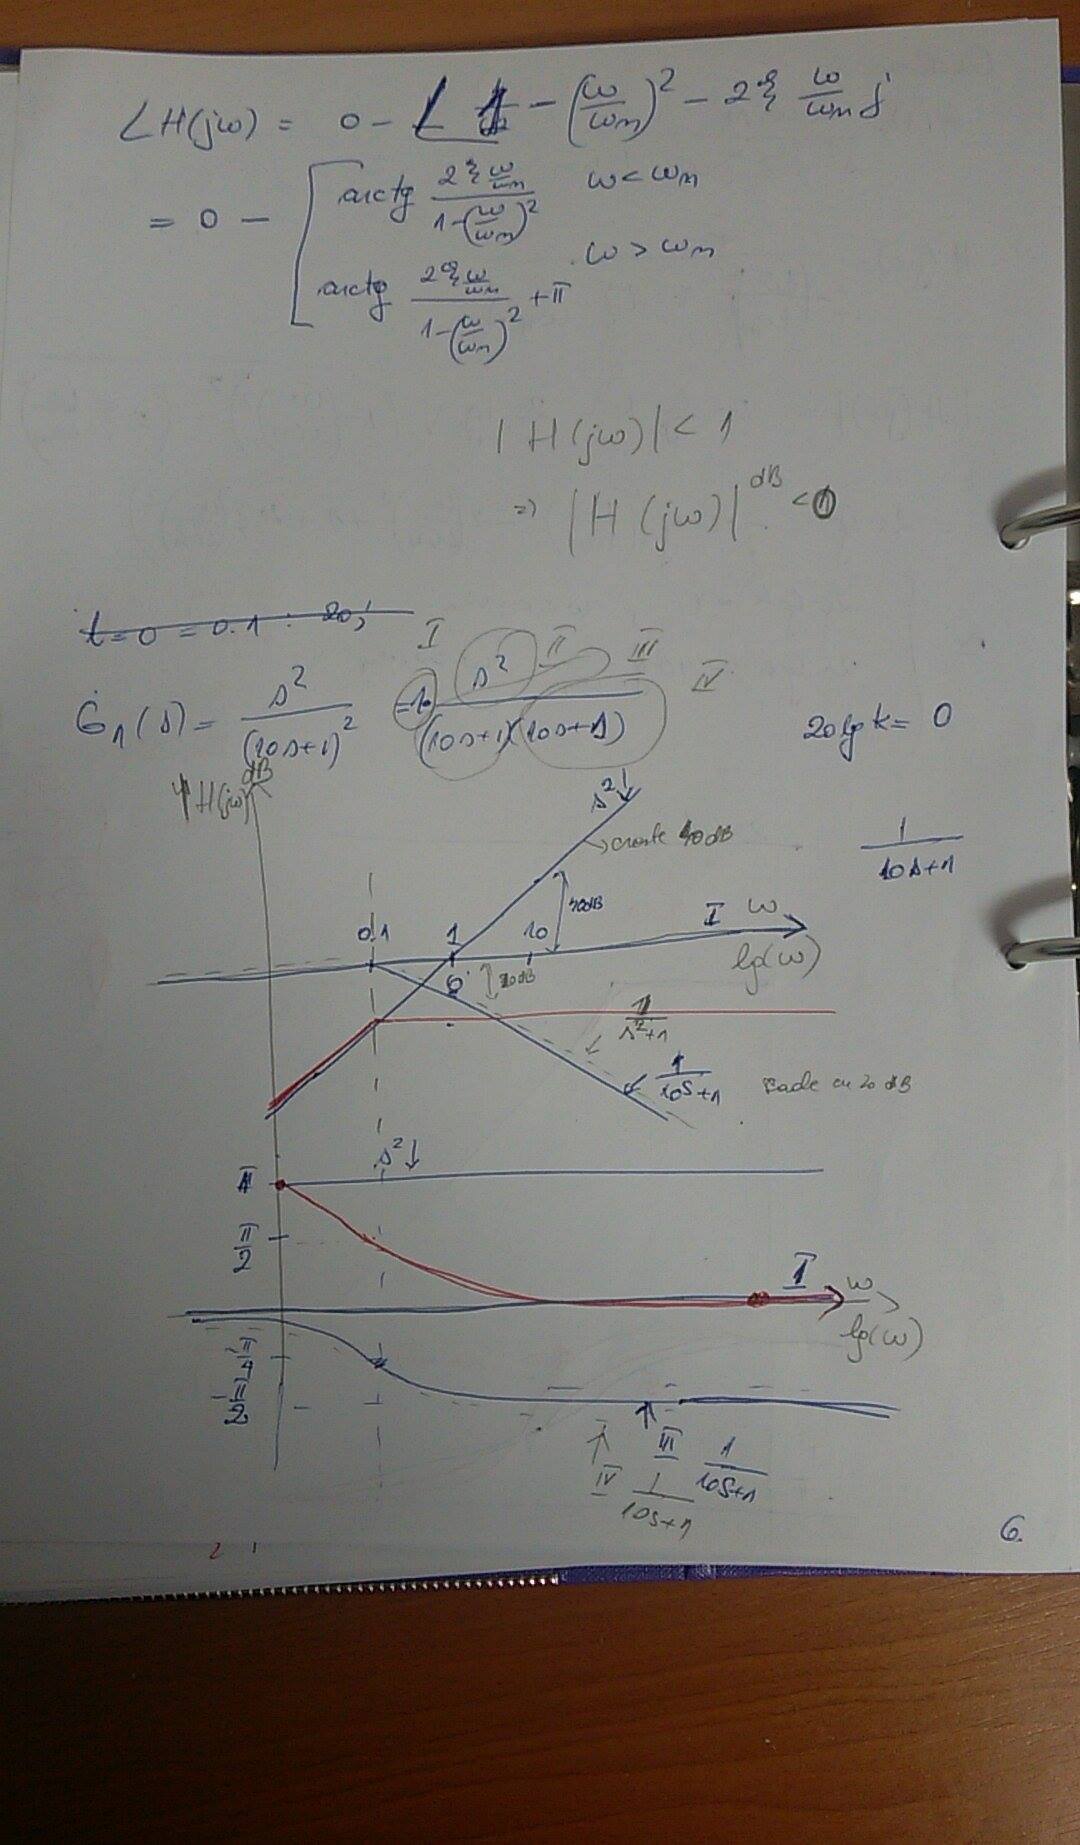 ∠H(jω) = 0 - ∠ 1 - (ω/ωn)² - 2ξ ω/ωn j
= 0 - [ arctg (2ξ ω/ωn)/(1-(ω/ωn)²) ω < ωn
arctg (2ξ ω/ωn)/(1-(ω/ωn)²) + π ω > ωn
|H(jω)| < 1
=> |H(jω)|^dB < 0
t=0 = 0.1 : 20;
I II III IV
G₁(s) = s²/(10s+1)² = s²/((10s+1)(10s+1))
20lg k = 0
|H(jω)| dB
s² ↓
→ crește 40dB
1/(10s+1)
0.1 1 10
40dB
I ω
lg(ω)
0
20dB
1/(s²+1)
1/(10s+1) scade cu 20 dB
s² ↓
π
π/2
I ω
lg(ω)
-π/4
-π/2
III 1/(10s+1)
IV 1/(10s+1)
6.